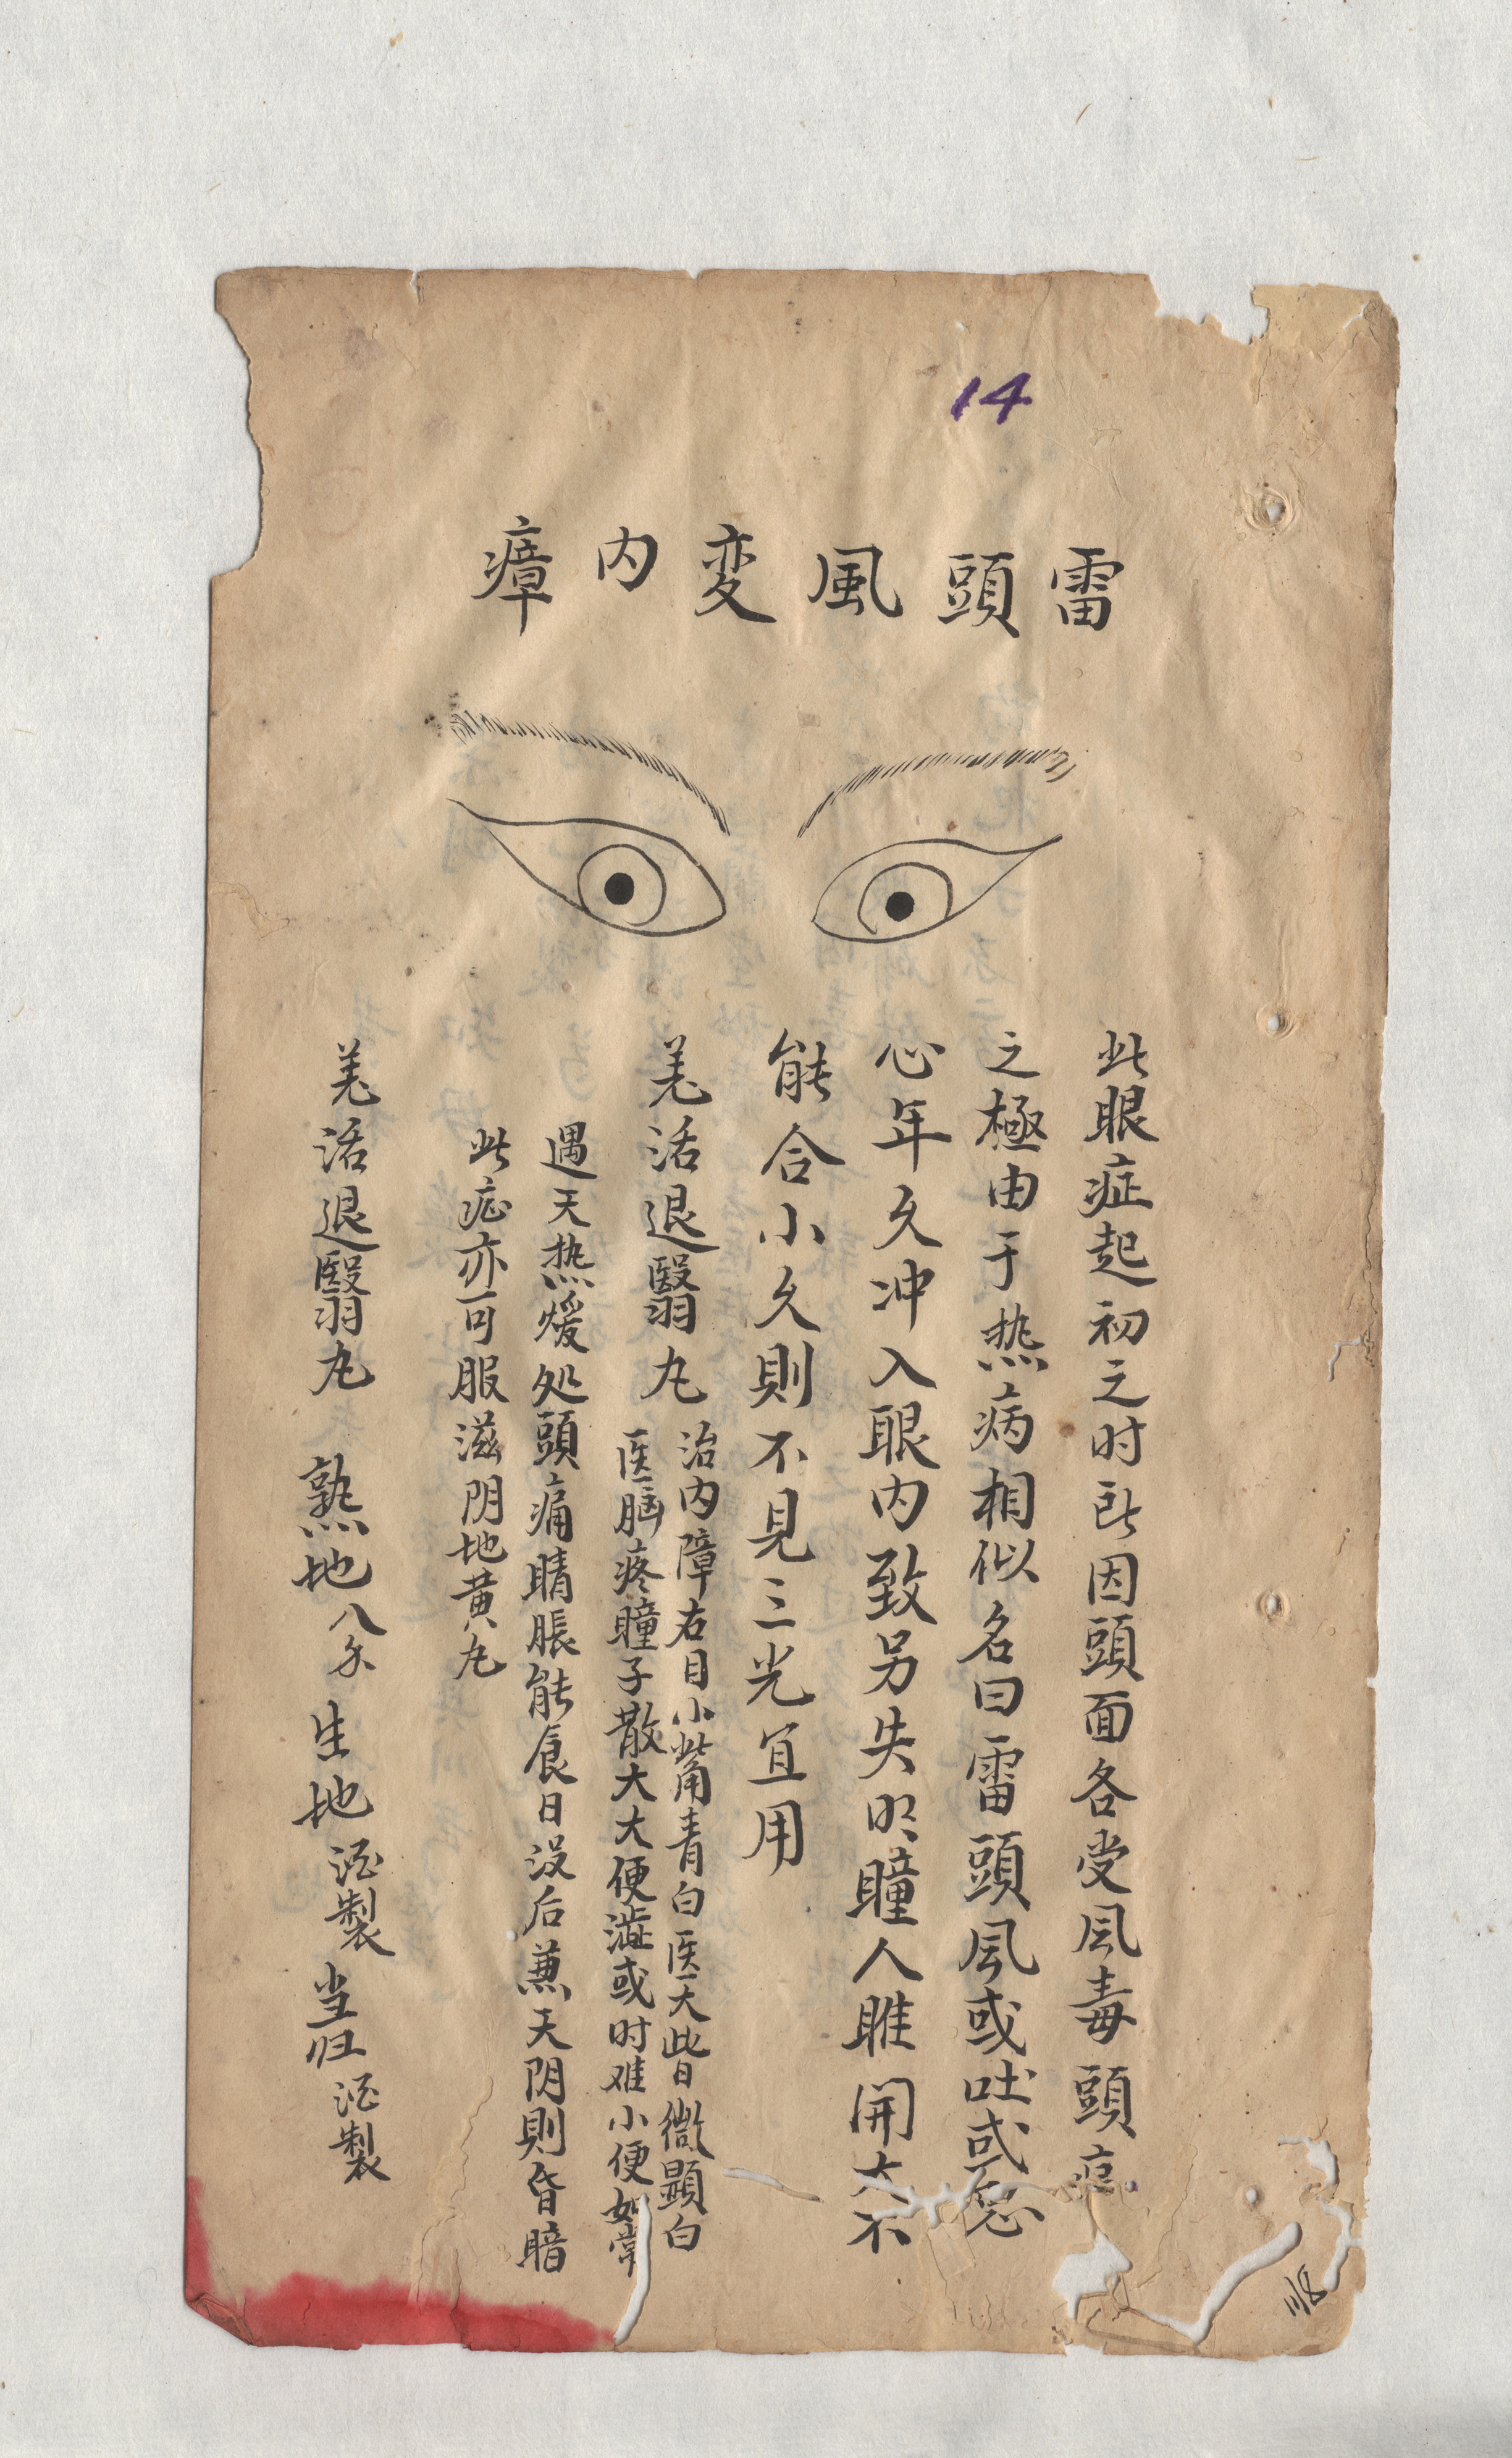 14
雷頭風変内瘴
此眼症起初之时所因頭面各受风毒頭
之極由于热病相似名曰雷頭风或吐或惡
心年久冲入眼内致另失明瞳人睢開大不
能合小久則不見三光宜用
羌活退翳丸 治内障右目小觜青白医大眥微顯白
医脑疼瞳子散大大便澁或时难小便如常
遇天热煖处頭痛睛脹能食日没后兼天阴則昏暗
此症亦可服滋阴地黄丸
羌活退翳丸 熟地八分 生地酒製 当归酒製